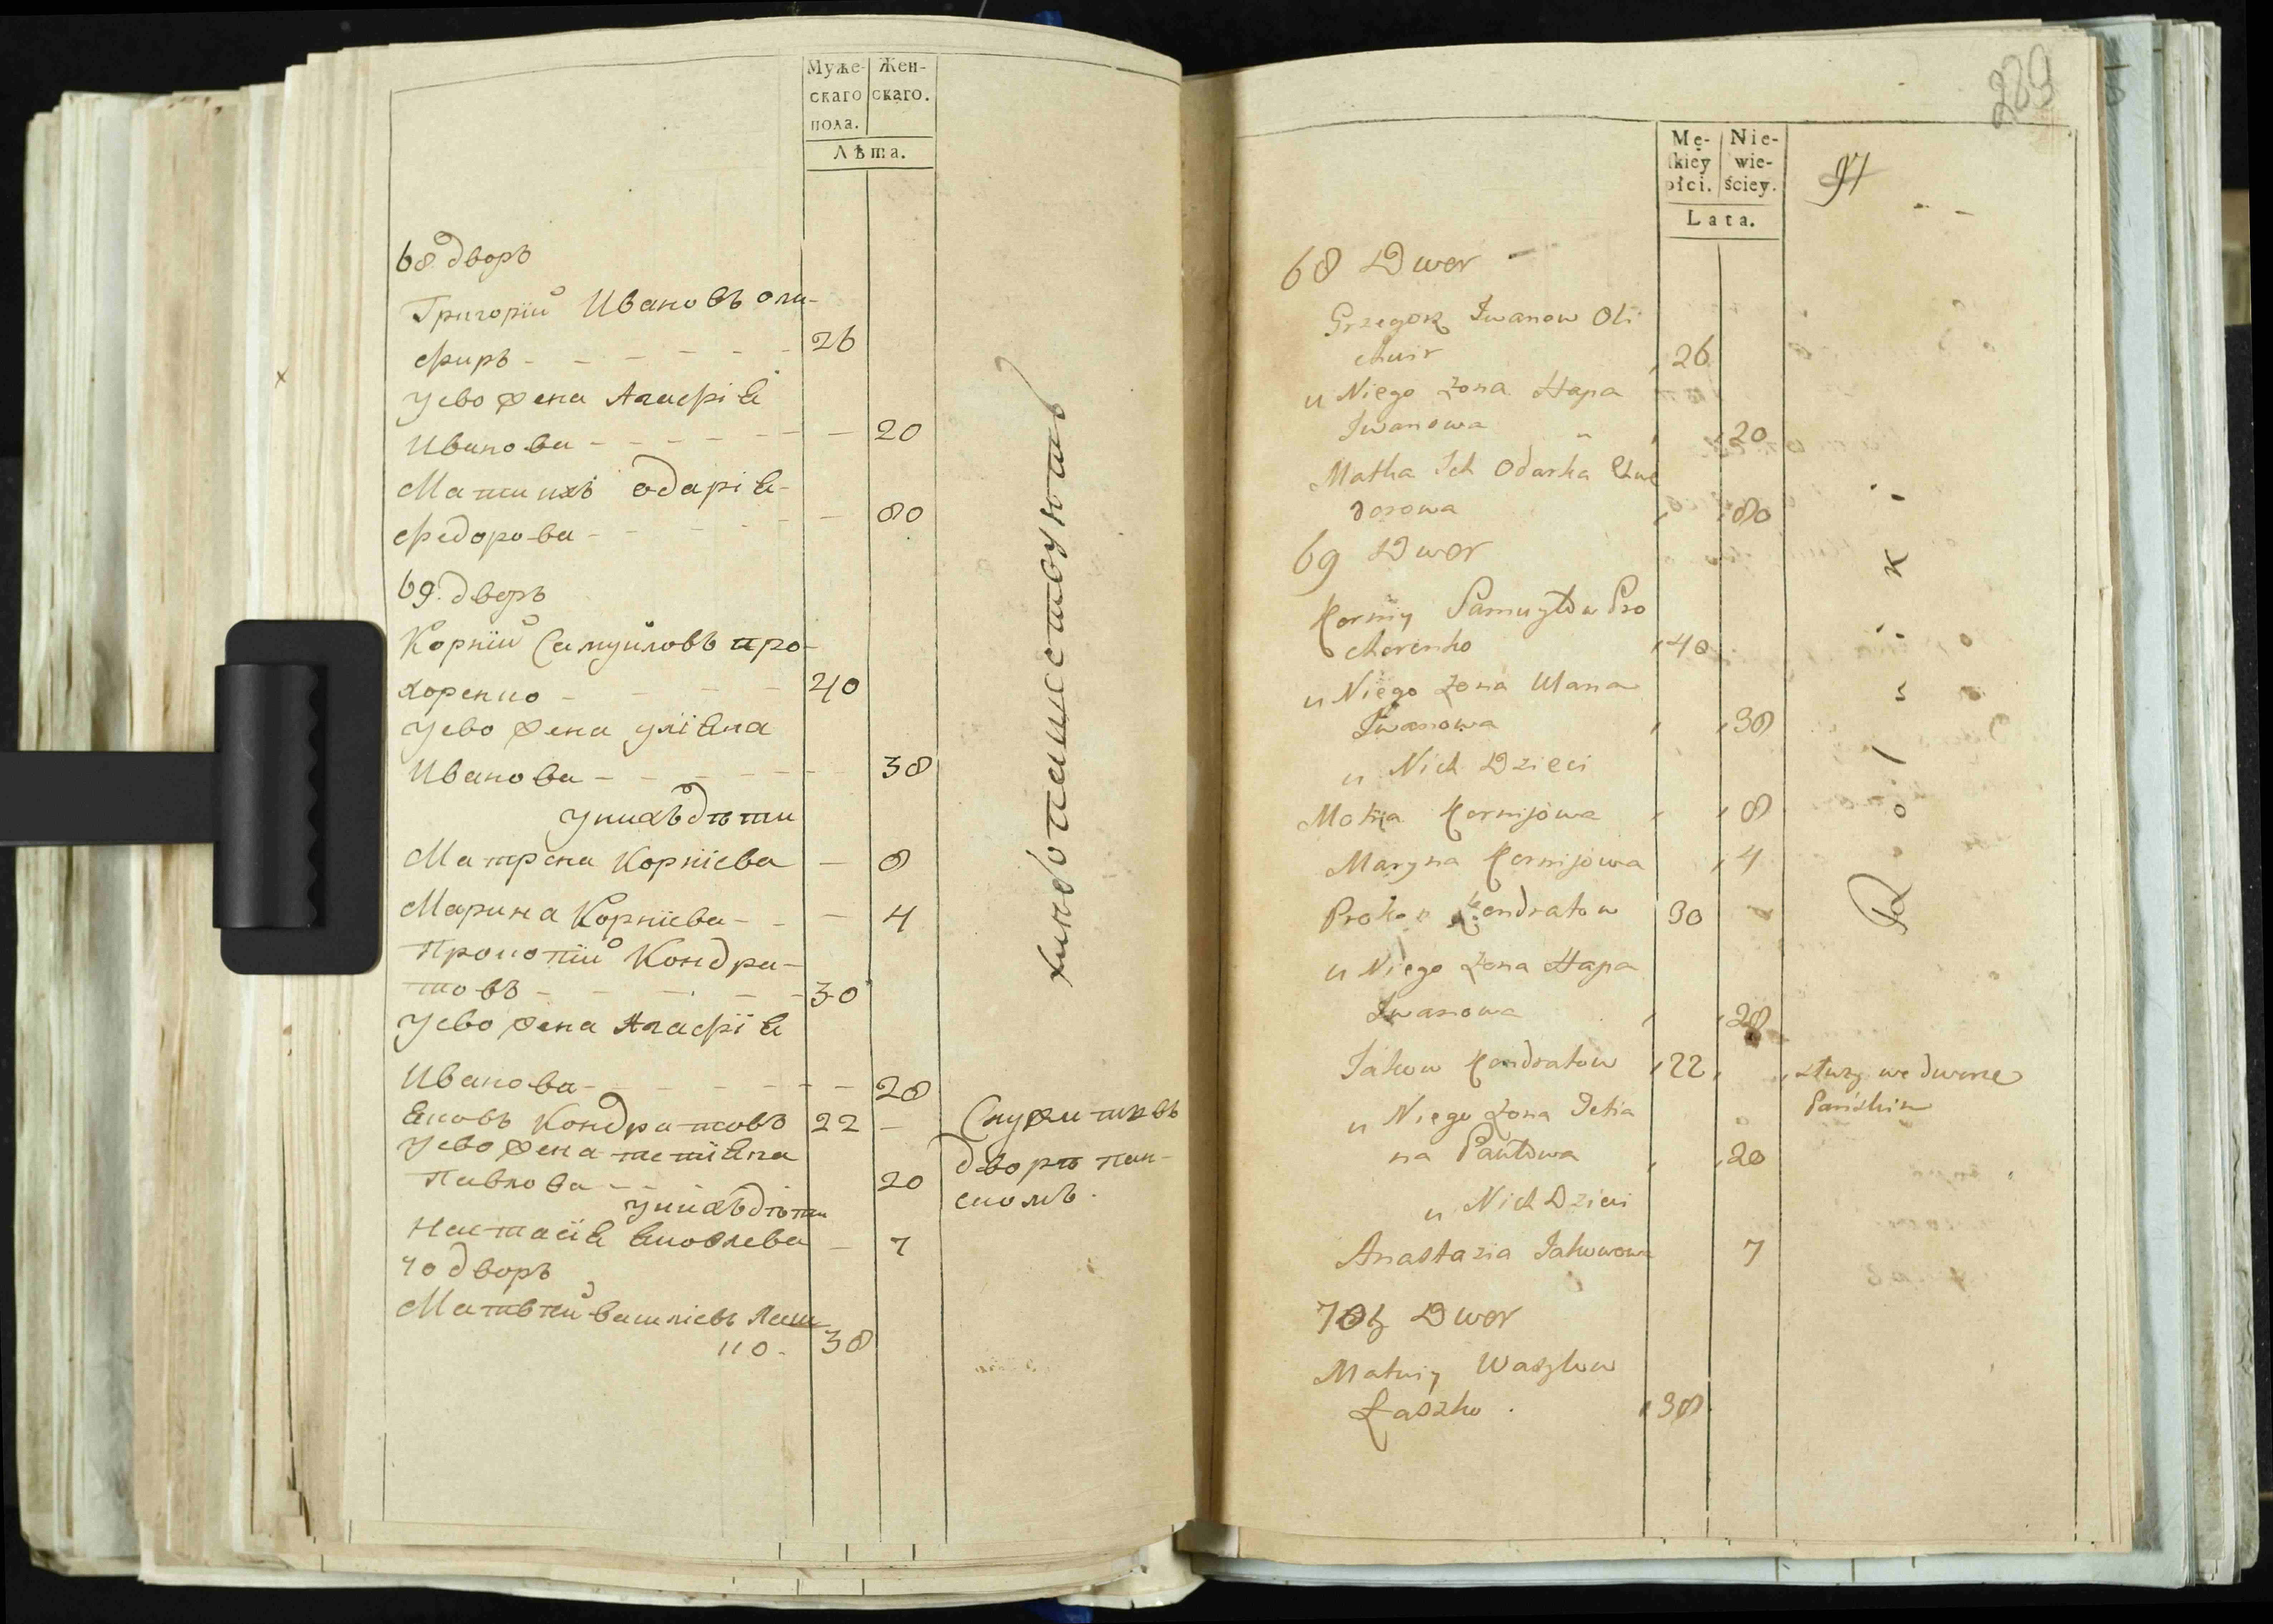 Муже-
скаго
пола.
Жен-
скаго.
Лѣта.
68 дворъ
Григорій Ивановъ оли-
фиръ - 26
Уево жена Агафія
Иванова - 20
Мати ихъ одарія
федорова - 80
69. дворъ
Корній Самуйловъ про-
хоренко - 40
Уево жена уліяна
Иванова - 38
Унихъ дѣти
Матрена Корніева - 8
Марина Корніева - 4
Прокопій Кондра-
товъ - 30
Уево жена Агафія
Иванова - 28
Яковъ Кондратовъ 22 -
Уево жена тетіяна
Павлова - 20
Унихъ дѣти
Настасія Яковлева - 7
70 дворъ
Матвѣй василіевъ Лаш
ко - 38
хлебопашествуютъ
Служитъ въ
дворѣ пан-
скомъ.
289
Mę-
skiéy
płci.
Nie-
wie-
ściey.
Lata.
91
68 Dwor
Grzegorz Iwanow Oli
chwir 26
u Niego Żona Hapa
Iwanowa 20
Matka Ich Odarka Chwe
dorowa 80
69 Dwor
Korniy Samuyłow Pro
chorenko 40
u Niego Żona Ulana
Iwanowa 38
u Nich Dzieci
Motria Kornijowa 8
Maryna Kornijowa 4
Prokop Kondratow 30
u Niego Żona Hapa
Iwanowa 28
Jakow Kondratow 22
u Niego Żona Tetia
na Pawłowa 20
u Nich Dzieci
Anastazia Jakowowa 7
70ty Dwor
Matwiy Wasylow
Łaszko. 38
R o l s k i
służy we dworze
Pańskim